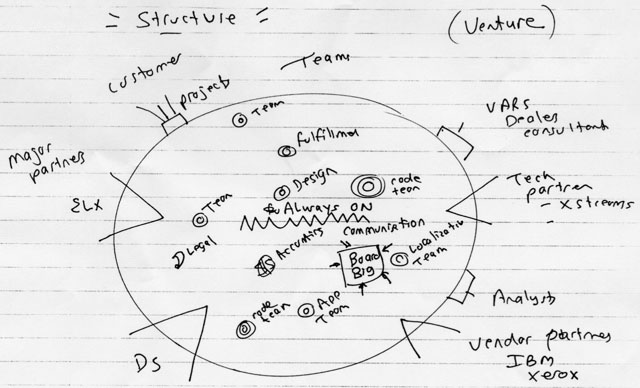 = Structure =
(Venture)
Teams
customer
projects
Team
VARS
Deales
consultant
Fulfillmed
major
partners
Design
code
team
Tech
partner
- xstreams
ELX
Team
Always ON
communication
D Legal
Accounting
Board
Big
Localization
Team
Analysts
code
team
App
Team
DS
Vendor partners
IBM
xerox